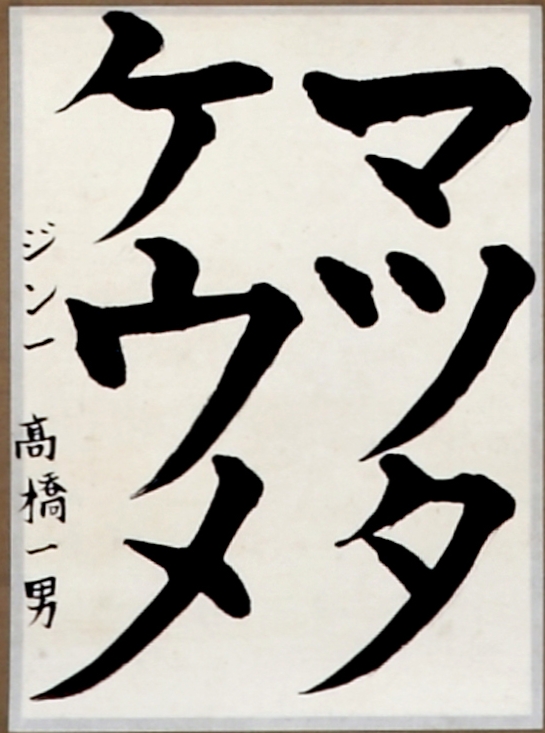 マツタ
ケウメ
ジン一 髙橋一男